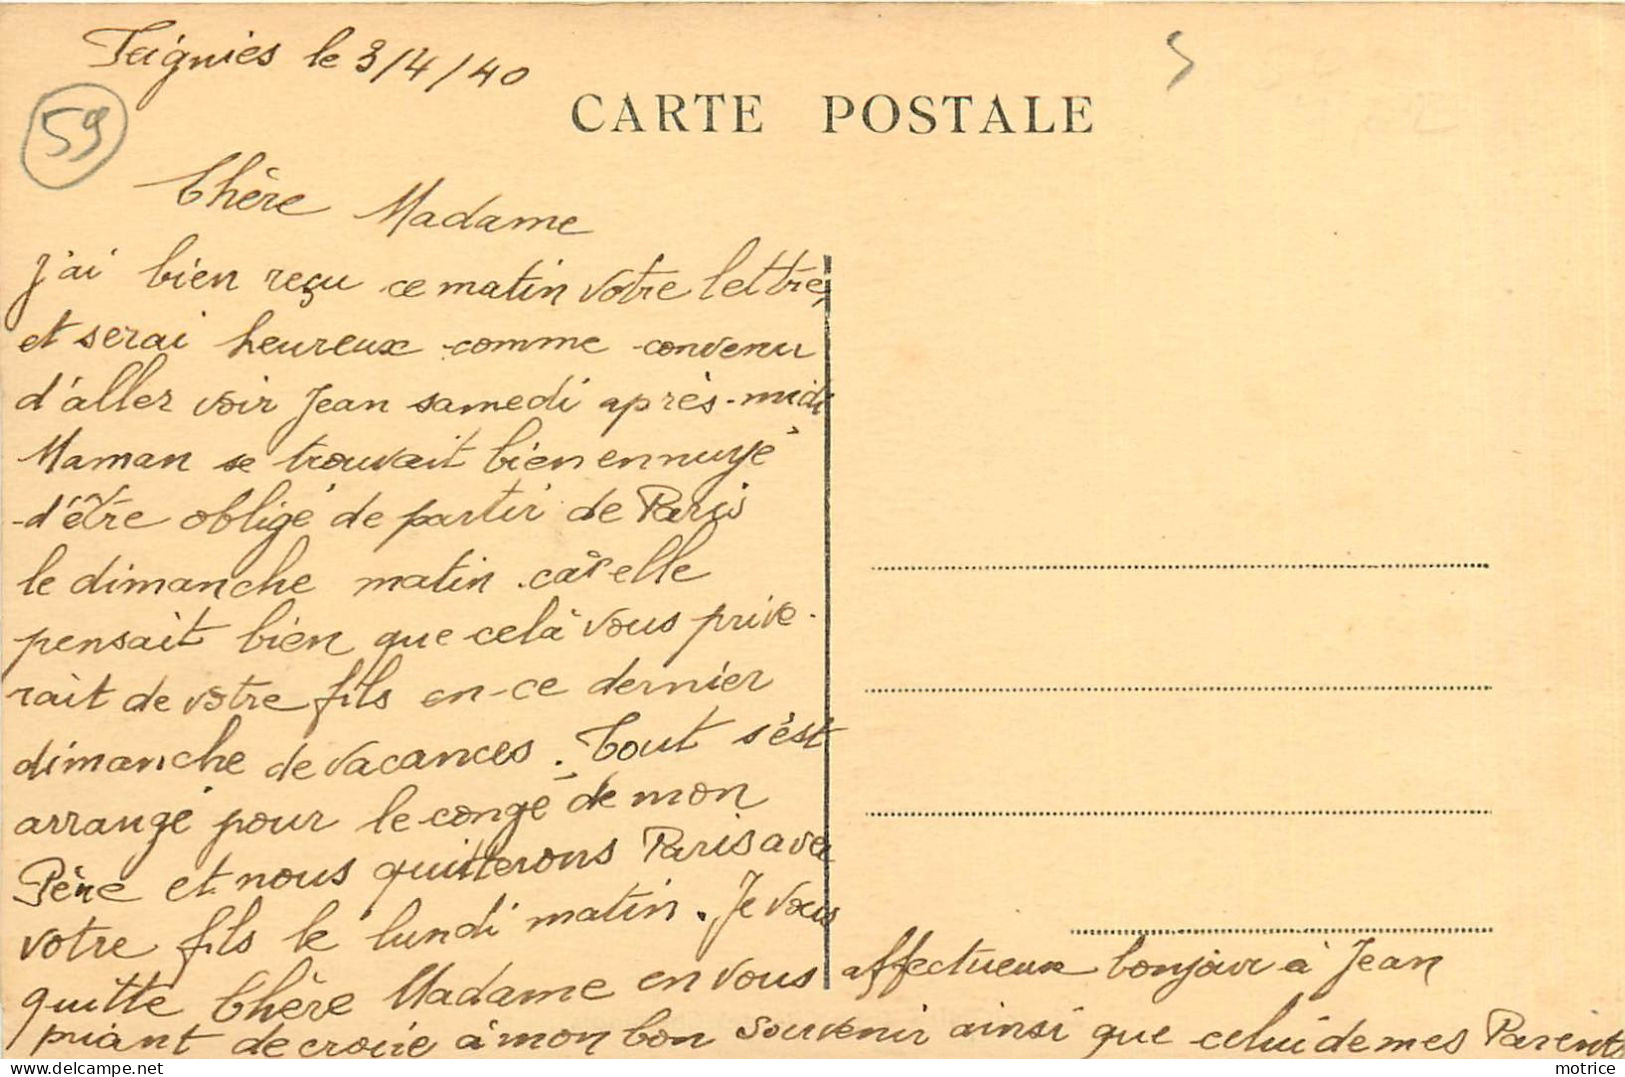 Feignies le 3/4/40
59
CARTE POSTALE
Chère Madame
J'ai bien reçu ce matin votre lettre,
et serai heureux comme convenu
d'aller voir Jean samedi après-midi
Maman se trouvait bien ennuyé
d'être obligé de partir de Paris
le dimanche matin car elle
pensait bien que celà vous prive-
rait de votre fils en ce dernier
dimanche de vacances. Tout s'est
arrangé pour le congé de mon
Père et nous quitterons Paris avec
votre fils le lundi matin. Je vous
quitte Chère Madame en vous affectueux bonjour à Jean
priant de croire à mon bon souvenir ainsi que celui de mes Parents
motrice